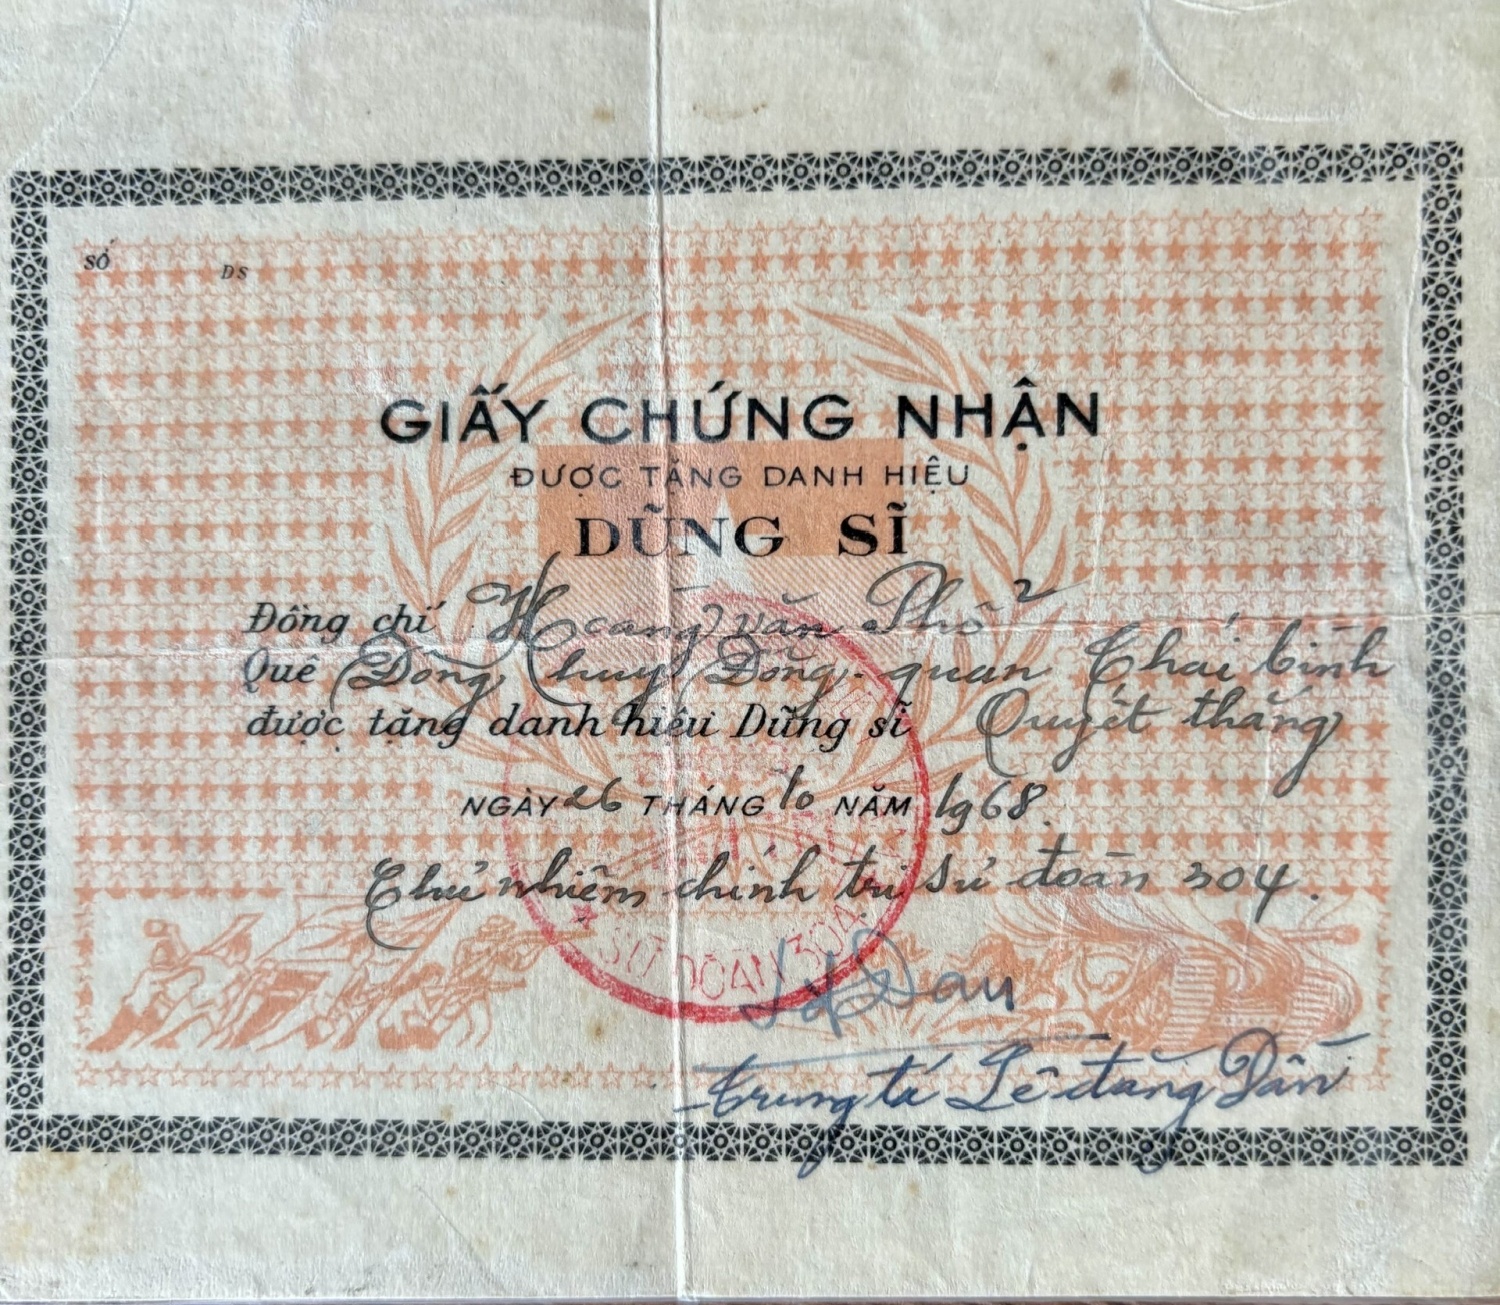 SỐ DS
GIẤY CHỨNG NHẬN
ĐƯỢC TẶNG DANH HIỆU
DŨNG SĨ
Đồng chí Hoàng văn Phổ
Quê Đông huy Đông quan Thái bình
được tặng danh hiệu Dũng sĩ Quyết thắng
NGÀY 26 THÁNG 10 NĂM 1968.
Chủ nhiệm chính trị sư đoàn 304.
SƯ ĐOÀN 304
Trung tá Lê đăng Dần